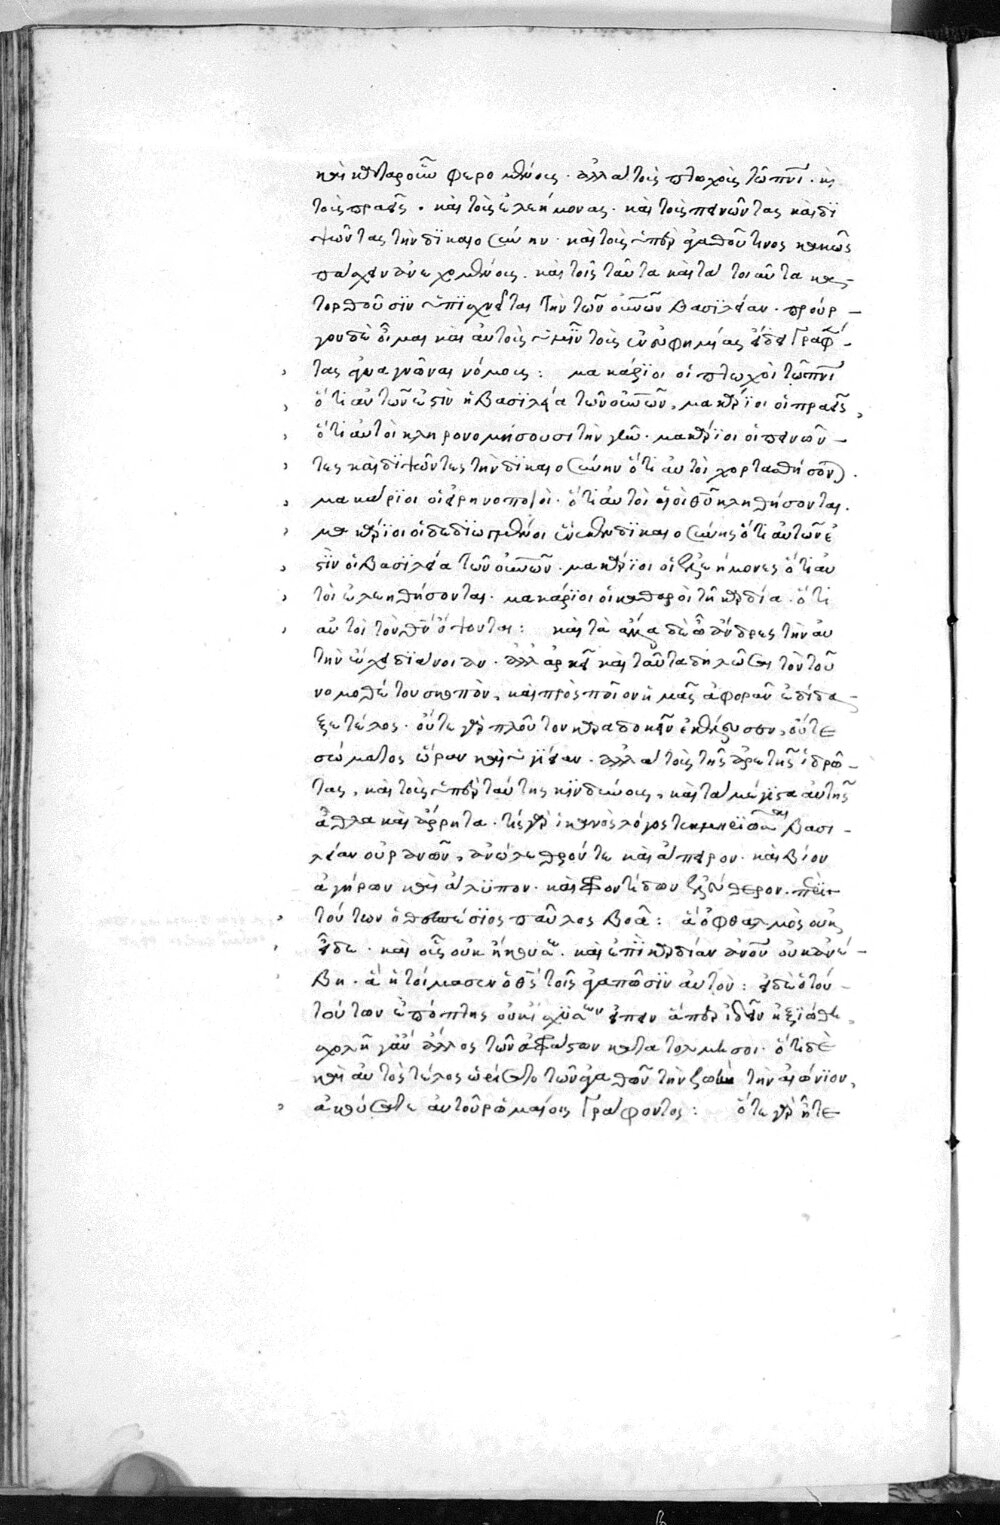 καὶ κυταροῖς φερομένοις· ἀλλὰ τοῖς πτωχοῖς τῶ πνι· κ(αὶ)
τοῖς πραέσι· καὶ τοὺς ἐλεήμονας· καὶ τοὺς πεινῶντας καὶ δι
ψῶντας τὴν δικαιοσύνην· καὶ τοῖς ὑπὲρ ἀγαθοῦ τινος κακῶς
πάσχειν ἀνεχομένοις· καὶ τοῖς ταῦτα καὶ τὰ τοιαῦτα κα-
τορθοῦσϊν ὑπϊσχνεῖται τὴν τῶν οὐνῶν βασϊλείαν· προύρ-
γου δὲ οἶμαι καὶ αὐτοὺς ὑμῖν τοὺς εὐφημίας εἴδει γραφέν-
τας ἀναγνῶναι νόμους: μακάρϊοι οἱ πτωχοὶ τῶ πνι
ὅτι αὐτῶν ἐστὶν ἡ βασϊλεία τῶν οὐνῶν, μακάρϊοι οἱ πραεῖς,
ὅτι αὐτοὶ κληρονομήσουσι τὴν γῆν· μακάρϊοι οἱ πεινῶν-
τες καὶ δϊψῶντες τὴν δϊκαιοσύνην ὅτι αὐτοὶ χορτασθήσον(ται)·
μακάρϊοι οἱ εἰρηνοποιοὶ· ὅτι αὐτοὶ υἱοὶ θυ κληθήσονται·
μακάρϊοι οἱ δεδιωγμένοι ἕνεκεν δϊκαιοσύνης ὅτι αὐτῶν ἐ
στὶν ἡ βασϊλεία τῶν οὐνῶν· μακάρϊοι οἱ ἐλεήμονες ὅτι αὐ
τοὶ ἐλεηθήσονται· μακάρϊοι οἱ καθαροὶ τῆ καρδία· ὅτι
αὐτοὶ τὸν θν ὄψονται: καὶ τὰ ἄλλα δὲ ὦ ἄνδρες τὴν αὐ
τὴν ἔχει δϊάνοιαν· ἀλλ' ἀρκεῖ καὶ ταῦτα δηλῶσαι τὸν τοῦ
νομοθέτου σκοπὸν, καὶ πρὸς ποῖον ἡμᾶς ἀφορᾶν ἐδίδα-
ξε τέλος· οὔτε γὰρ πλοῦτον καραδοκεῖν ἐκέλευσεν, οὔτε
σώματος ὥραν καὶ ὑγίειαν· ἀλλὰ τοὺς τῆς ἀρετῆς ἱδρῶ-
τας, καὶ τοὺς ὑπὲρ ταύτης κϊνδύνους, καὶ τὰ μέγϊστα αὐτῆς
ἆθλα καὶ ἄρρητα· τίς γὰρ ἱκανὸς λόγος βασι-
λείαν οὐρανῶν, ἀνώλεθρόν τε καὶ ἀπέραντον· καὶ βίον
ἀγήρων καὶ ἄλϋπον· καὶ φροντίδων ἐλεύθερον· περὶ
τούτων ὁ θεσπέσϊος παῦλος βοᾶ: ἃ ὀφθαλμὸς οὐκ
εἶδε· καὶ οὖς οὐκ ἤκουσε· καὶ ἐπὶ καρδίαν ἀνου οὐκ ἀνέ-
βη· ἃ ἡτοίμασεν ὁ θς τοῖς ἀγαπῶσϊν αὐτὸν: εἰ δὲ ὁ τού-
των ἐπόπτης οὐκ ἴσχυσεν εἰπεῖν ἅπερ ἰδεῖν ἠξιώθη,
σχολῆ γ' ἂν ἄλλος τῶν ἀφράστων κατατολμήσοι· ὅτι δὲ
καὶ αὐτὸς τέλος ὡρίσατο τῶν ἀγαθῶν τὴν ζωὴν τὴν αἰώνϊον,
ἀκούσατε αὐτοῦ ῥωμαίοις γράφοντος: ὅτε γὰρ ἦτε